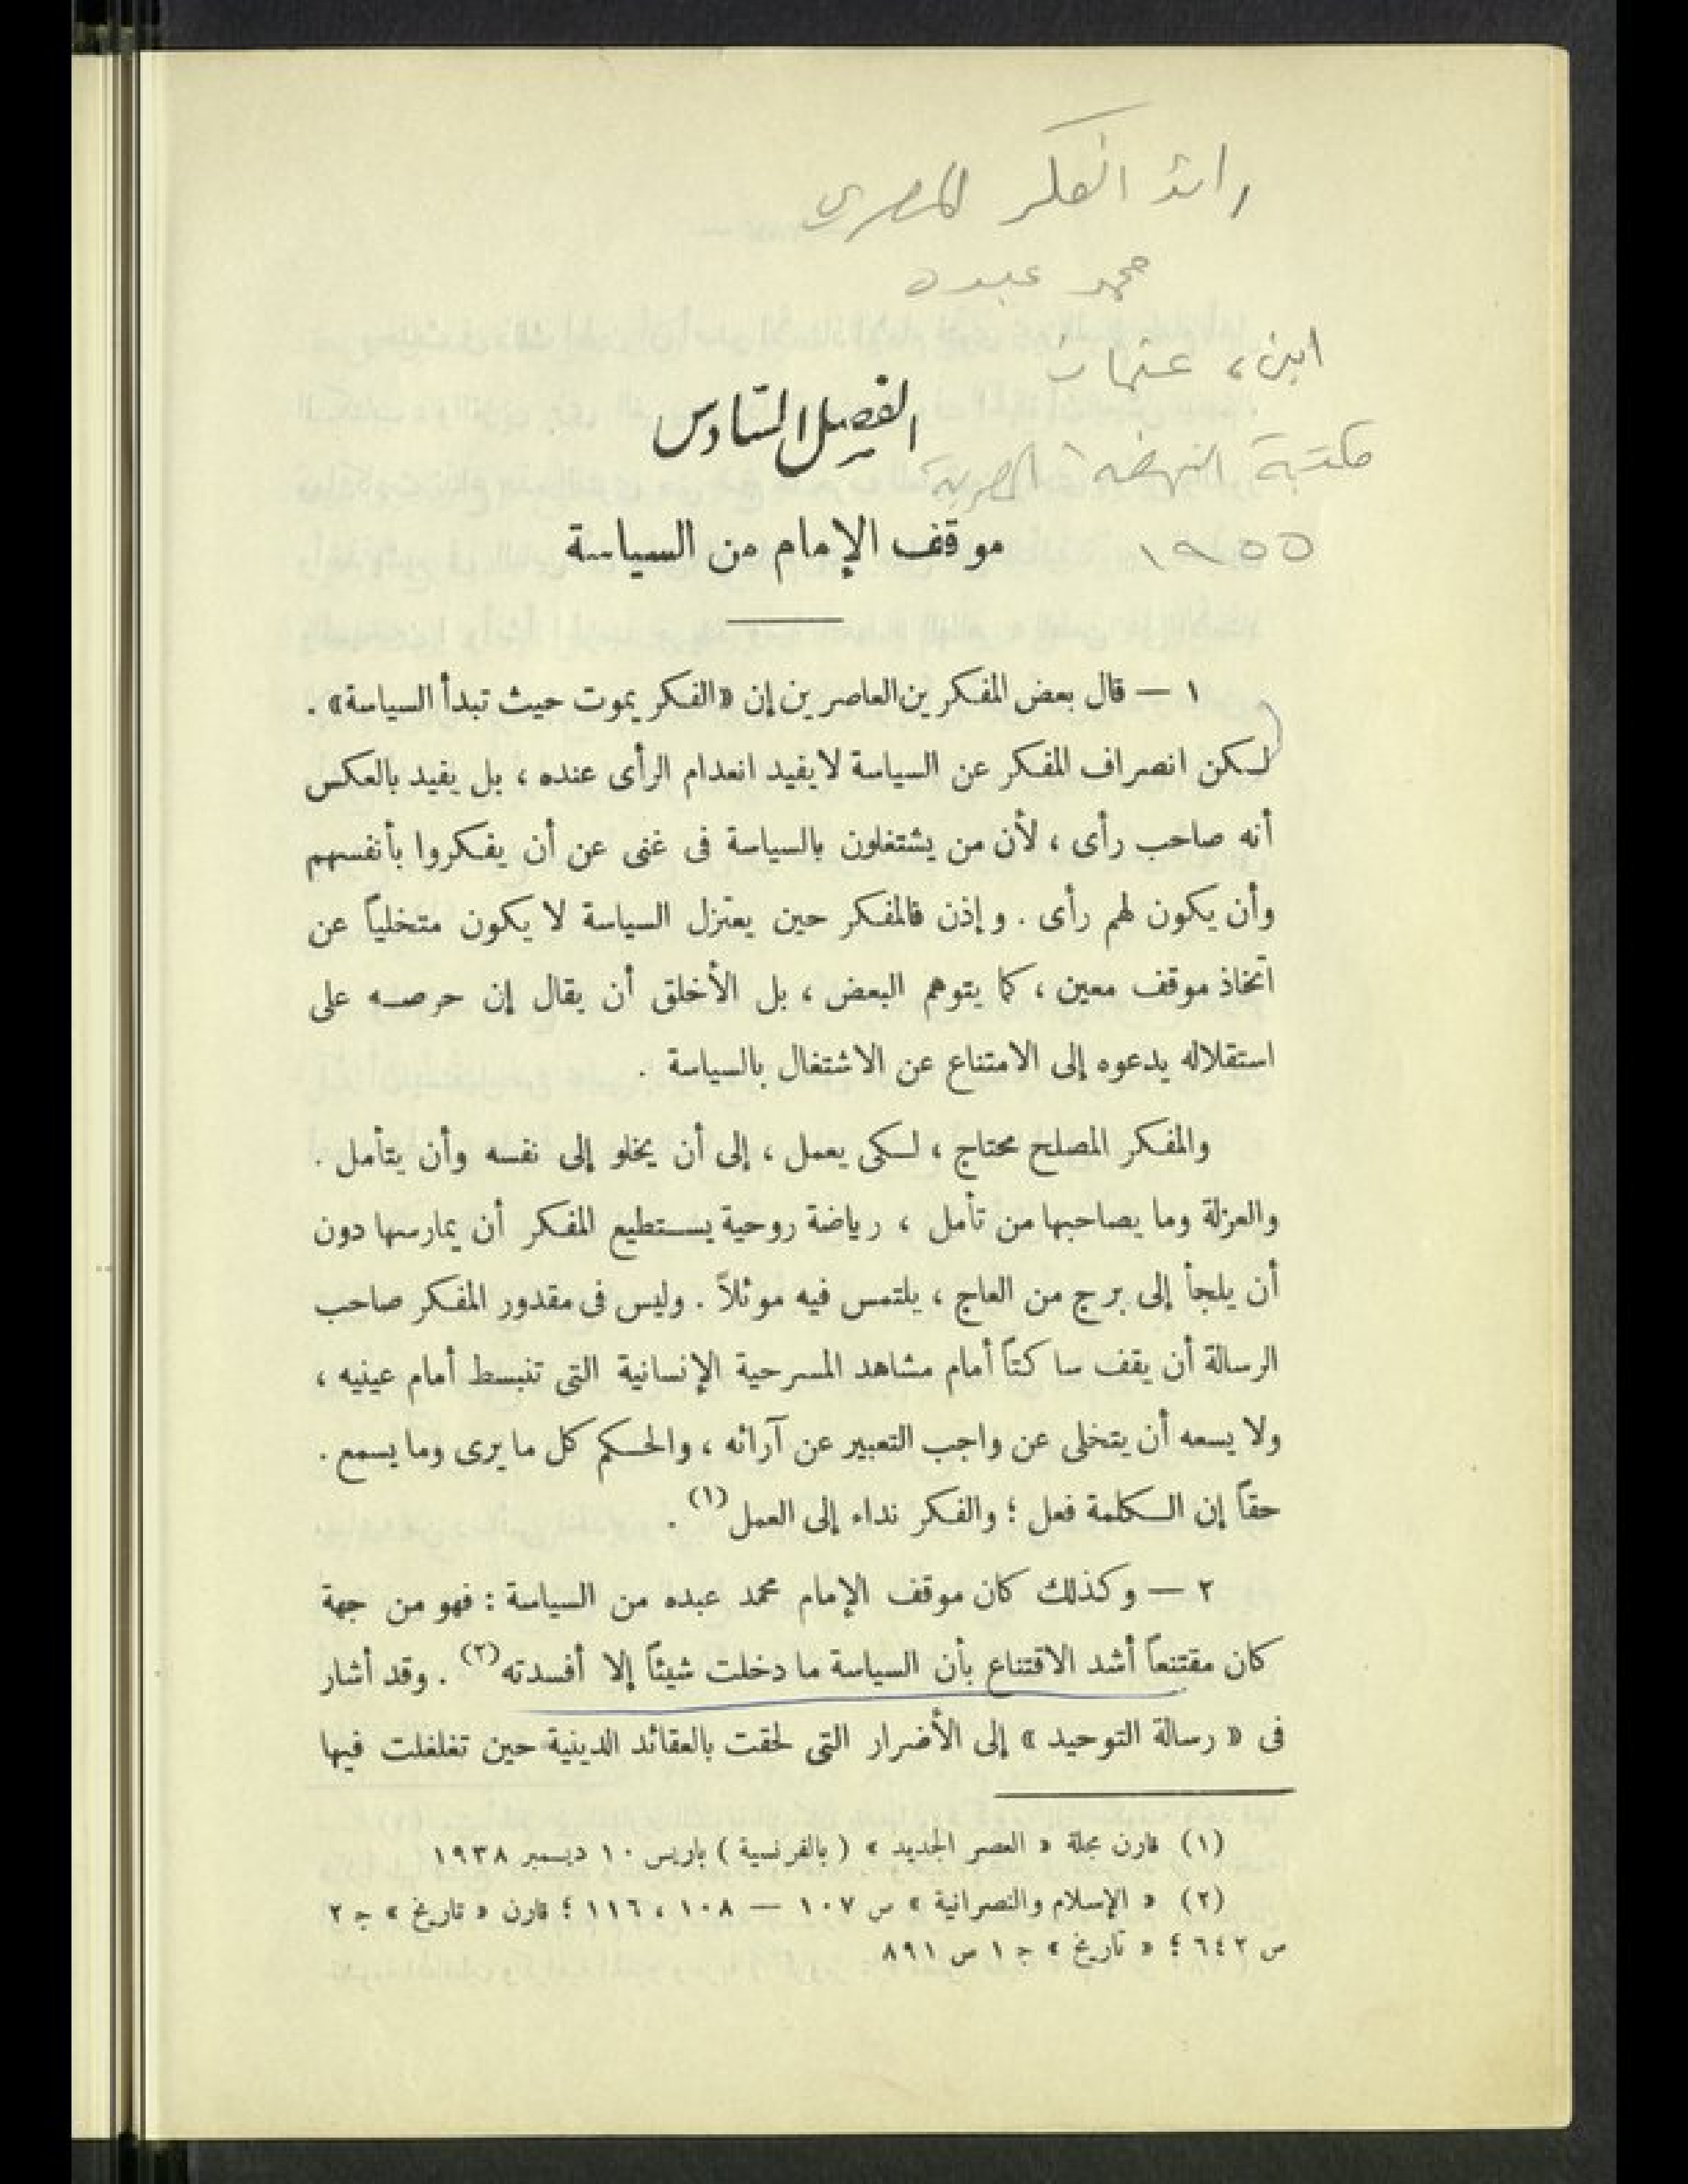 رائد الفكر المصرى
محمد عبده
امين، عثمان
مكتبة النهضة المصرية
١٩٥٥
الفصل السادس
موقف الإمام من السياسة
١ — قال بعض المفكرين العاصرين إن «الفكر يموت حيث تبدأ السياسة» .
لكن انصراف المفكر عن السياسة لا يفيد انعدام الرأى عنده ، بل يفيد بالعكس
أنه صاحب رأى ، لأن من يشتغلون بالسياسة فى غنى عن أن يفكروا بأنفسهم
وأن يكون لهم رأى . وإذن فالمفكر حين يعتزل السياسة لا يكون متخلياً عن
اتخاذ موقف معين ، كما يتوهم البعض ، بل الأخلق أن يقال إن حرصه على
استقلاله يدعوه إلى الامتناع عن الاشتغال بالسياسة .
والمفكر المصلح محتاج ، لكى يعمل ، إلى أن يخلو إلى نفسه وأن يتأمل .
والعزلة وما يصاحبها من تأمل ، رياضة روحية يستطيع المفكر أن يمارسها دون
أن يلجأ إلى برج من العاج ، يلتمس فيه موئلاً . وليس فى مقدور المفكر صاحب
الرسالة أن يقف ساكتاً أمام مشاهد المسرحية الإنسانية التى تنبسط أمام عينيه ،
ولا يسعه أن يتخلى عن واجب التعبير عن آرائه ، والحكم كل ما يرى وما يسمع .
حقاً إن الكلمة فعل ؛ والفكر نداء إلى العمل (١) .
٢ — وكذلك كان موقف الإمام محمد عبده من السياسة : فهو من جهة
كان مقتنعاً أشد الاقتناع بأن السياسة ما دخلت شيئاً إلا أفسدته (٢) . وقد أشار
فى « رسالة التوحيد » إلى الأضرار التى لحقت بالعقائد الدينية حين تغلغلت فيها
(١) قارن مجلة « العصر الجديد » ( بالفرنسية ) باريس ١٠ ديسمبر ١٩٣٨
(٢) « الإسلام والنصرانية » ص ١٠٧ — ١٠٨ ، ١١٦ ؛ قارن « تاريخ » ج ٢
ص ٦٤٢ ؛ « تاريخ » ج ١ ص ٨٩١